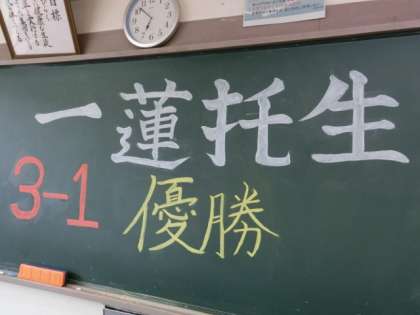 一蓮托生
3-1
優勝